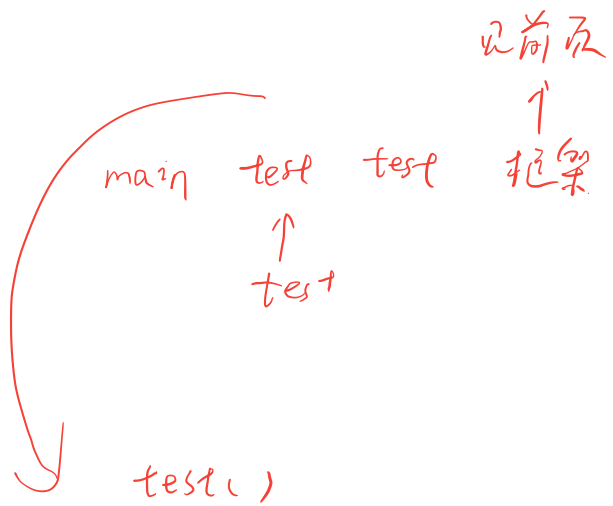 见前页
main test test 框架
test
test()